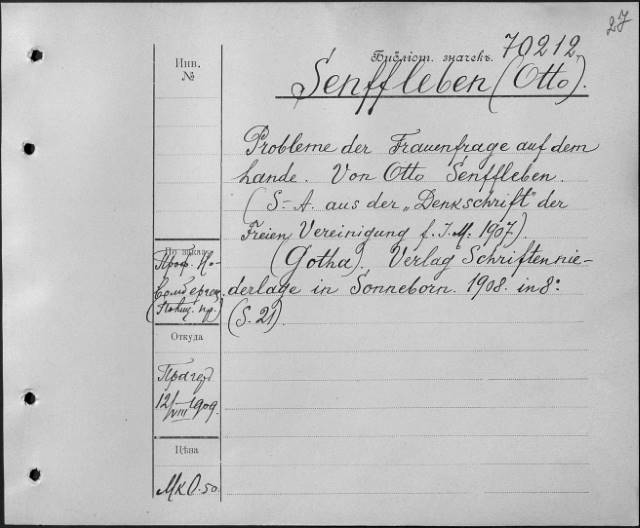 27
Инв.
№
Библіот. значекъ. 70212.
Senffleben (Otto).
Probleme der Frauenfrage auf dem
Lande. Von Otto Senffleben.
(S-A. aus der „Denkschrift" der
Freien Vereinigung f. I. M. 1907.)
(Gotha). Verlag Schriftennie-
derlage in Sonneborn. 1908. in 8º
(S. 21).
По заказу
Проф.
Откуда
12/VIII 1909.
Цѣна
Mk 0.50